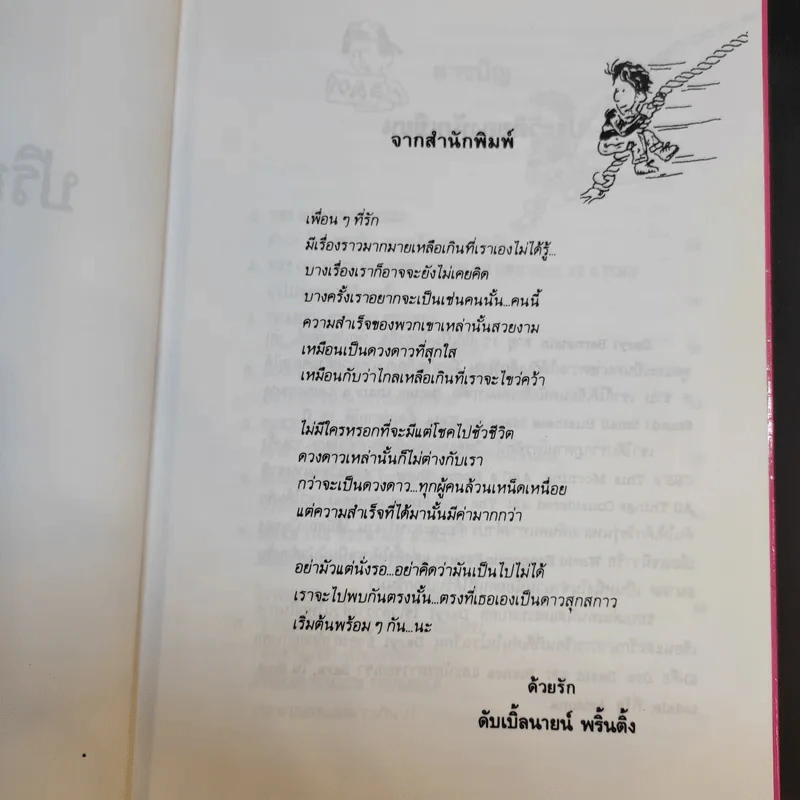 จากสำนักพิมพ์
เพื่อน ๆ ที่รัก
มีเรื่องราวมากมายเหลือเกินที่เราเองไม่ได้รู้...
บางเรื่องเราก็อาจจะยังไม่เคยคิด
บางครั้งเราอยากจะเป็นเช่นคนนั้น...คนนี้
ความสำเร็จของพวกเขาเหล่านั้นสวยงาม
เหมือนเป็นดวงดาวที่สุกใส
เหมือนกับว่าไกลเหลือเกินที่เราจะไขว่คว้า
ไม่มีใครหรอกที่จะมีแต่โชคไปชั่วชีวิต
ดวงดาวเหล่านั้นก็ไม่ต่างกับเรา
กว่าจะเป็นดวงดาว...ทุกผู้คนล้วนเหน็ดเหนื่อย
แต่ความสำเร็จที่ได้มานั้นมีค่ามากกว่า
อย่ามัวแต่นั่งรอ...อย่าคิดว่ามันเป็นไปไม่ได้
เราจะไปพบกันตรงนั้น...ตรงที่เธอเองเป็นดาวสุกสกาว
เริ่มต้นพร้อม ๆ กัน...นะ
ด้วยรัก
ดับเบิ้ลนายน์ พริ้นติ้ง